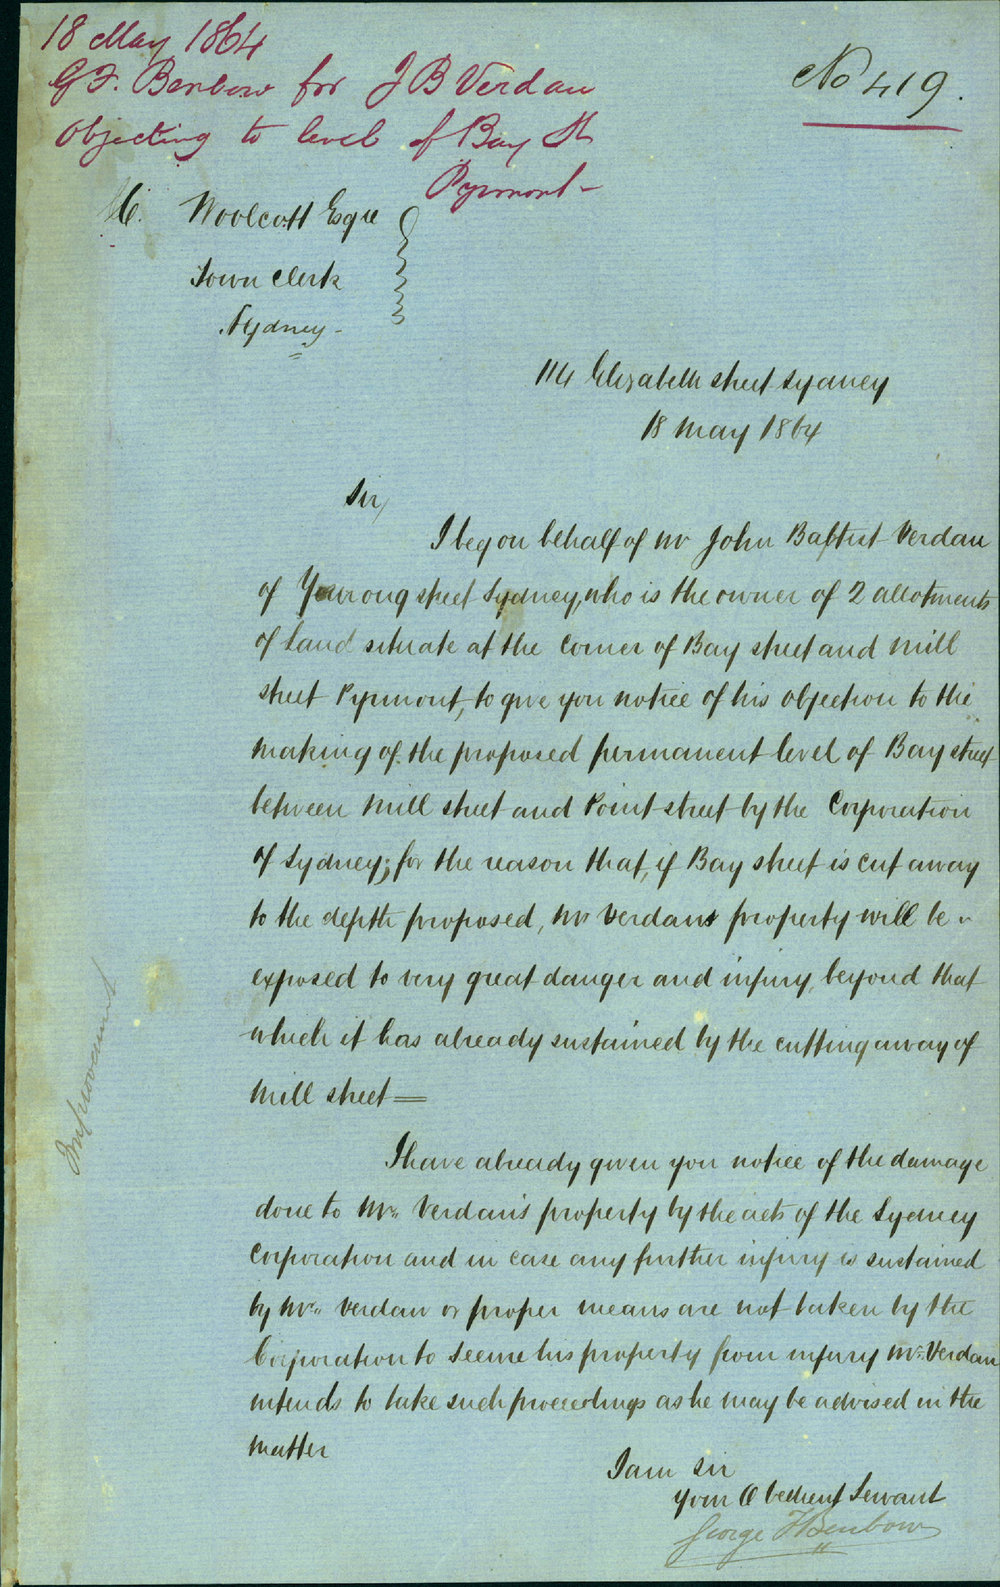 18 May 1864
G F. Benbow for J B Verdau
Objecting to level of Bay St
Pyrmont -
No 419.
C. Woolcott Esqre
Town Clerk
Sydney -
114 Elizabeth street Sydney
18 May 1864
Sir,
I beg on behalf of Mr John Baptist Verdau
of Yurong street Sydney, who is the owner of 2 allotments
of land situate at the corner of Bay street and Mill
street Pyrmont, to give you notice of his objection to the
making of the proposed permanent level of Bay street
between Mill street and Point street by the Corporation
of Sydney; for the reason that, if Bay street is cut away
to the depth proposed, Mr Verdaus property will be
exposed to very great danger and injury, beyond that
which it has already sustained by the cutting away of
Mill street =
I have already given you notice of the damage
done to Mr. Verdau's property by the acts of the Sydney
Corporation and in case any further injury is sustained
by Mr. Verdau or proper means are not taken by the
Corporation to secure his property from injury Mr. Verdau
intends to take such proceedings as he may be advised in the
matter
I am Sir
Your Obedient Servant
George F Benbow
Improvement